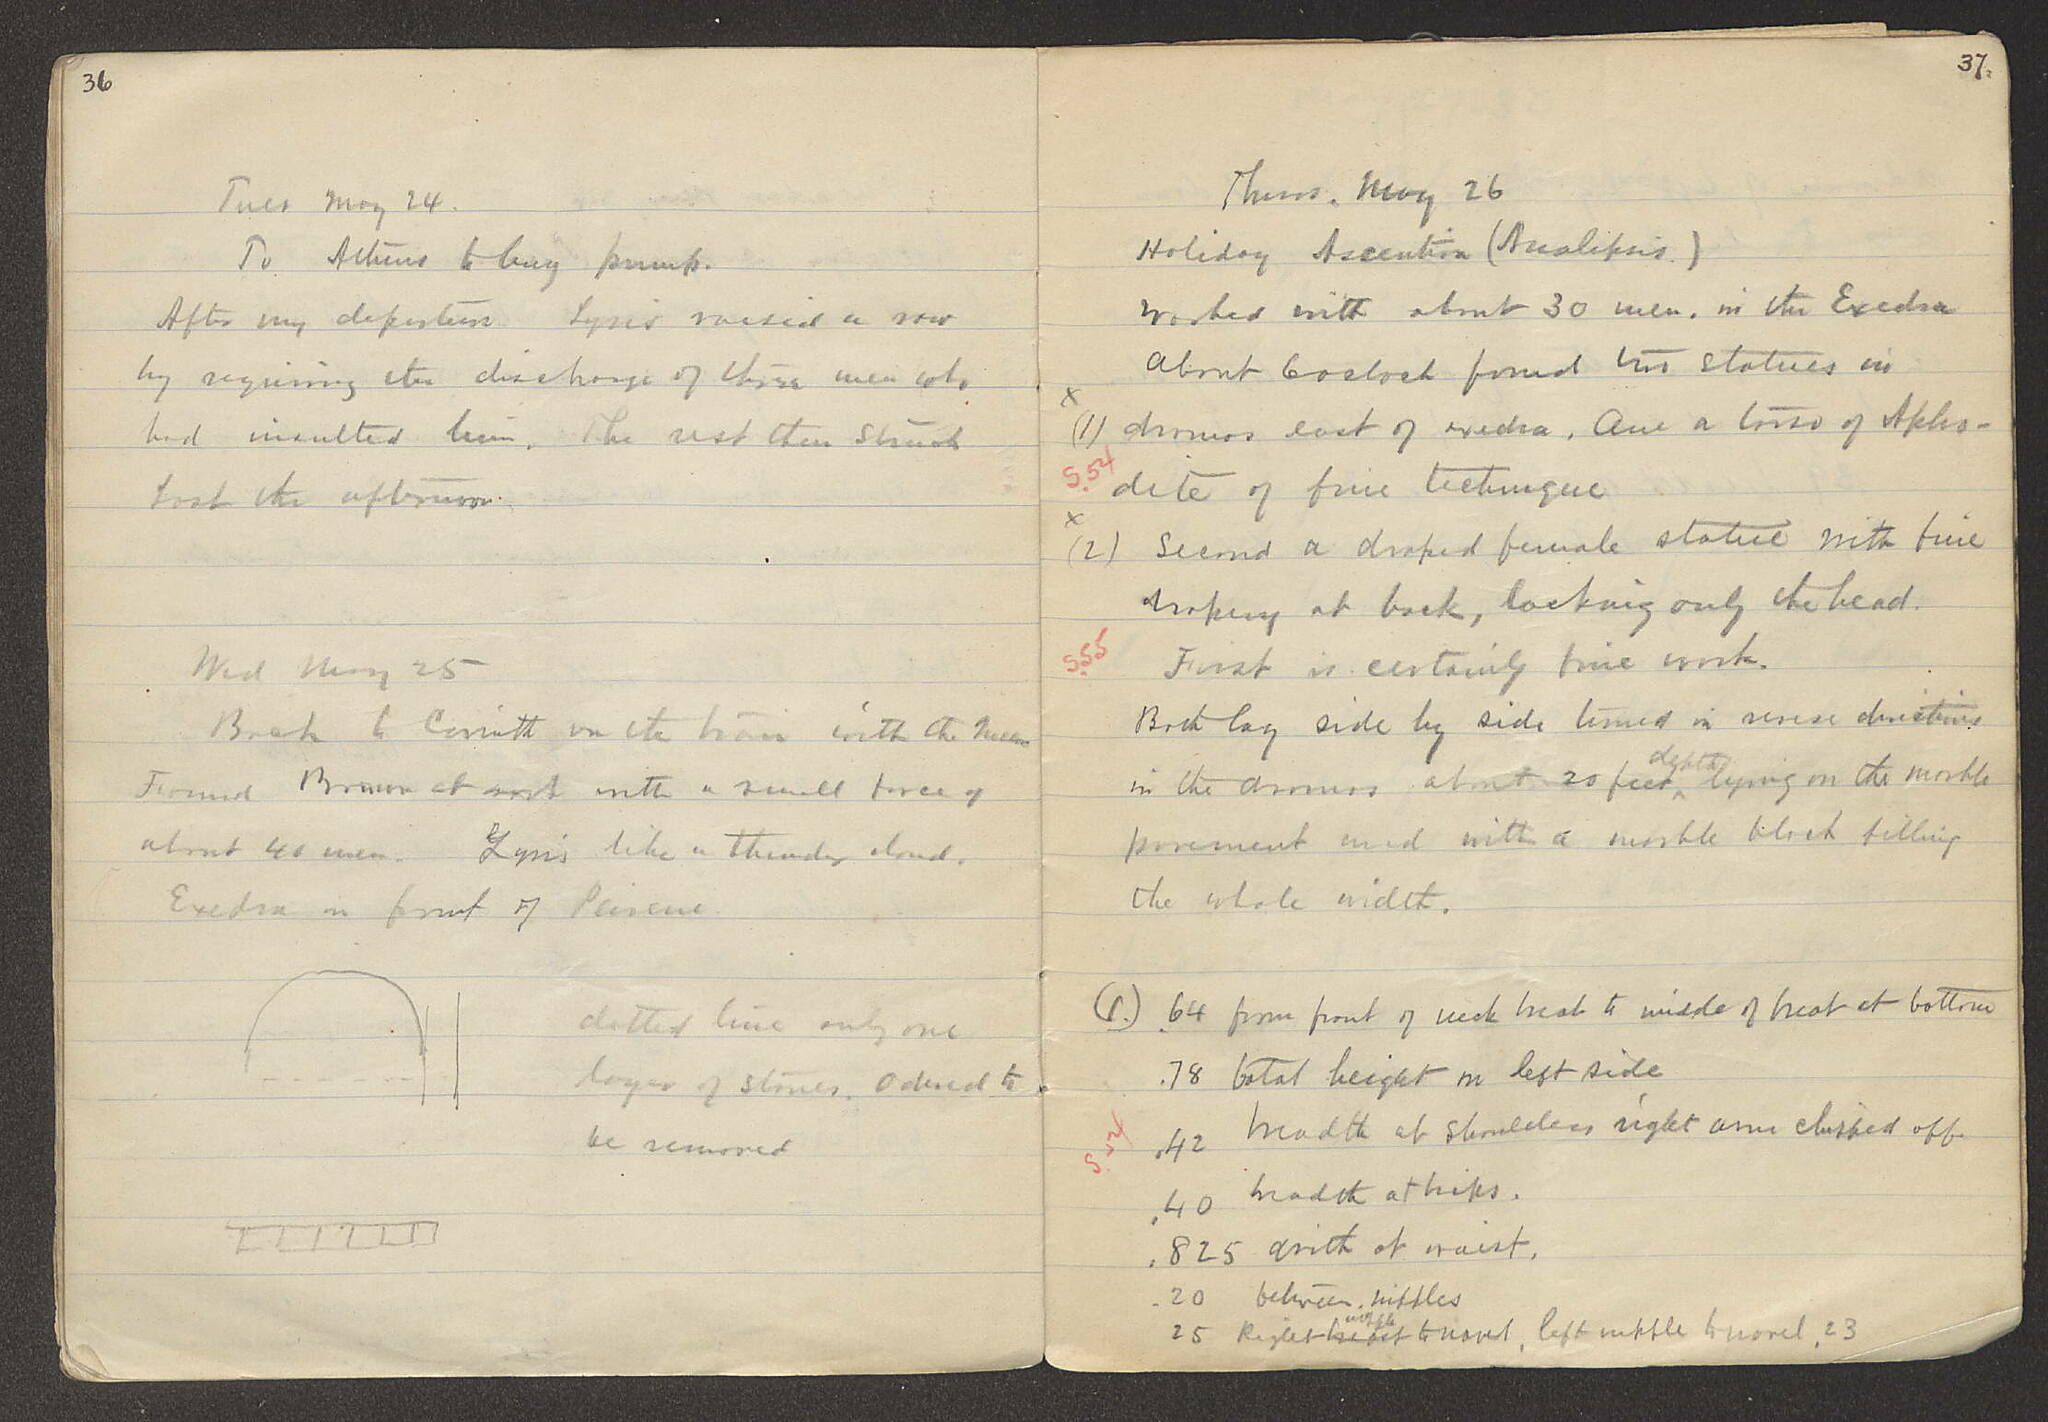 36
Tues May 24.
To Athens to buy pump.
After my departure Lysis raised a row
by requiring the discharge of three men who
had insulted him. The rest then struck
Lost the afternoon.
Wed May 25
Back to Corinth on the train with the
Found Brown at work with a small force of
about 40 men. Lysis like a thunder cloud.
Exedra in front of Peirene
dotted line only one
layer of stones. Odered to
be removed
37.
Thurs. May 26
Holiday Ascention (Analipsis.)
Worked with about 30 men. in the Exedra
About 6 oclock found two statues in
x
(1) dromos east of exedra. One a torso of Aphro-
S.54
dite of fine technique
x
(2) Second a draped female statue with fine
drapery at back, lacking only the head.
S.55
First is certainly fine work.
Both lay side by side turned in reverse directions
in the dromos about 20 feet depth lying on the marble
pavement and with a marble block filling
the whole width.
(1.) .64 from front of neck break to middle of break at bottom
.78 total height on left side
S.54
.42 breadth at shoulders right arm chipped off
.40 breadth at hips.
.825 girth at waist.
.20 between nipples
25 Right breast nipple to navel, left nipple to navel .23